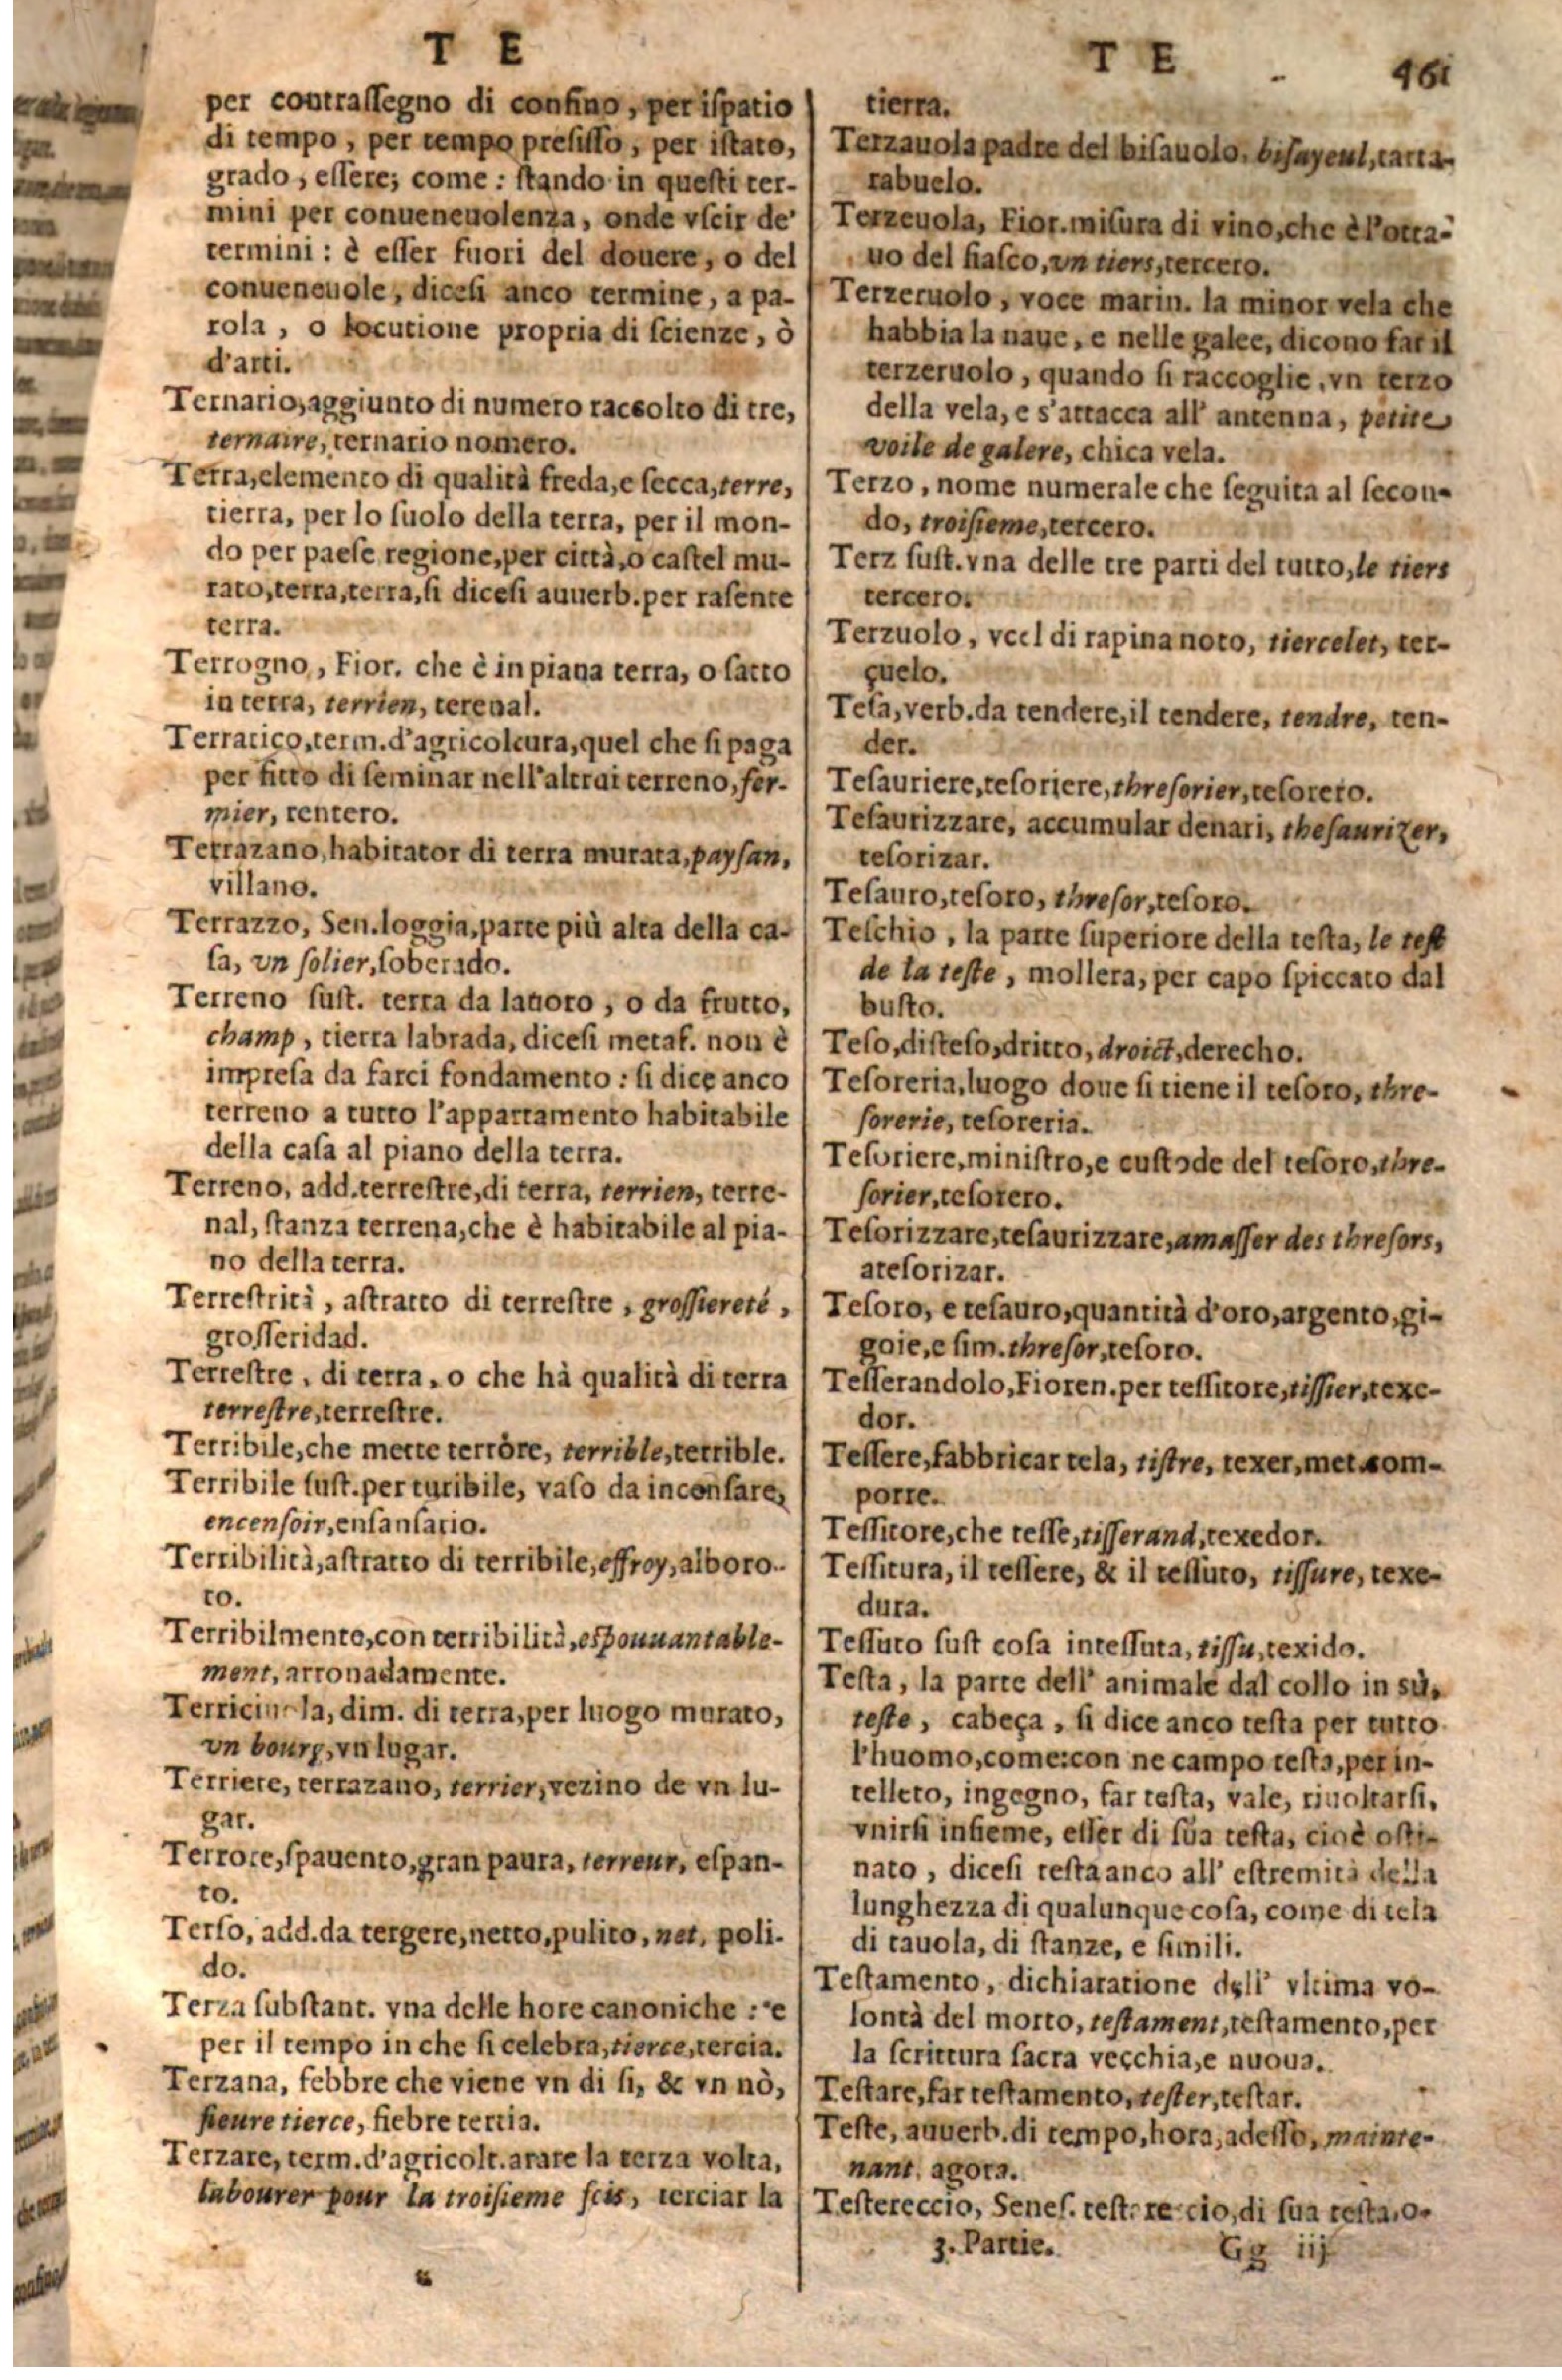 T E
per contraſſegno di confino, per iſpatio
di tempo, per tempo prefiſſo, per iſtato,
grado, eſſere; come: ſtando in queſti ter-
mini per conueneuolenza, onde vſcir de'
termini: è eſſer fuori del douere, o del
conueneuole, diceſi anco termine, a pa-
rola, o locutione propria di ſcienze, ò
d'arti.
Ternario, aggiunto di numero raccolto di tre,
ternaire, ternario nomero.
Terra, elemento di qualità freda, e ſecca, terre,
tierra, per lo ſuolo della terra, per il mon-
do per paeſe regione, per città, o caſtel mu-
rato, terra, terra, ſi diceſi auuerb. per raſente
terra.
Terrogno, Fior. che è in piana terra, o fatto
in terra, terrien, terenal.
Terratico, term. d'agricoltura, quel che ſi paga
per fitto di ſeminar nell'altrui terreno, fer-
mier, rentero.
Terrazano, habitator di terra murata, payſan,
villano.
Terrazzo, Sen. loggia, parte più alta della ca-
ſa, vn ſolier, ſoberado.
Terreno ſuſt. terra da lauoro, o da frutto,
champ, tierra labrada, diceſi metaf. non è
impreſa da farci fondamento: ſi dice anco
terreno a tutto l'appartamento habitabile
della caſa al piano della terra.
Terreno, add. terreſtre, di terra, terrien, terre-
nal, ſtanza terrena, che è habitabile al pia-
no della terra.
Terreſtrità, aſtratto di terreſtre, groſſiereté,
groſſeridad.
Terreſtre, di terra, o che hà qualità di terra
terreſtre, terreſtre.
Terribile, che mette terrore, terrible, terrible.
Terribile ſuſt. per turibile, vaſo da inconſare,
encenſoir, enſanſario.
Terribilità, aſtratto di terribile, effroy, alboro-
to.
Terribilmente, con terribilità, eſpouuantable-
ment, arronadamente.
Terriciuola, dim. di terra, per luogo murato,
vn bourg, vn lugar.
Terriere, terrazano, terrier, vezino de vn lu-
gar.
Terrore, ſpauento, gran paura, terreur, eſpan-
to.
Terſo, add. da tergere, netto, pulito, net, poli-
do.
Terza ſubſtant. vna delle hore canoniche: e
per il tempo in che ſi celebra, tierce, tercia.
Terzana, febbre che viene vn di ſi, & vn nò,
fieure tierce, fiebre tertia.
Terzare, term. d'agricolt. arare la terza volta,
labourer pour la troiſieme fois, terciar la
T E 461
tierra.
Terzauola padre del biſauolo, biſayeul, tarta-
rabuelo.
Terzeuola, Fior. miſura di vino, che è l'otta-
uo del fiaſco, vn tiers, tercero.
Terzeruolo, voce marin. la minor vela che
habbia la naue, e nelle galee, dicono far il
terzeruolo, quando ſi raccoglie, vn terzo
della vela, e s'attacca all' antenna, petite
voile de galere, chica vela.
Terzo, nome numerale che ſeguita al ſecon-
do, troiſieme, tercero.
Terz ſuſt. vna delle tre parti del tutto, le tiers
tercero.
Terzuolo, vccl di rapina noto, tiercelet, ter-
çuelo.
Teſa, verb. da tendere, il tendere, tendre, ten-
der.
Teſauriere, teſoriere, threſorier, teſorero.
Teſaurizzare, accumular denari, theſaurizer,
teſorizar.
Teſauro, teſoro, threſor, teſoro.
Teſchio, la parte ſuperiore della teſta, le teſt
de la teſte, mollera, per capo ſpiccato dal
buſto.
Teſo, diſteſo, dritto, droict, derecho.
Teſoreria, luogo doue ſi tiene il teſoro, thre-
ſorerie, teſoreria.
Teſoriere, miniſtro, e cuſtode del teſoro, thre-
ſorier, teſorero.
Teſorizzare, teſaurizzare, amaſſer des threſors,
ateſorizar.
Teſoro, e teſauro, quantità d'oro, argento, gi-
goie, e ſim. threſor, teſoro.
Teſſerandolo, Fioren. per teſſitore, tiſſier, texe-
dor.
Teſſere, fabbricar tela, tiſtre, texer, met. com-
porre.
Teſſitore, che teſſe, tiſſerand, texedor.
Teſſitura, il teſſere, & il teſſuto, tiſſure, texe-
dura.
Teſſuto ſuſt coſa inteſſuta, tiſſu, texido.
Teſta, la parte dell' animale dal collo in sù,
teſte, cabeça, ſi dice anco teſta per tutto
l'huomo, come: con ne campo teſta, per in-
telleto, ingegno, far teſta, vale, riuoltarſi,
vnirſi inſieme, eſſer di ſua teſta, cioè oſti-
nato, diceſi teſta anco all' eſtremità della
lunghezza di qualunque coſa, come di tela
di tauola, di ſtanze, e ſimili.
Teſtamento, dichiaratione dell' vltima vo-
lontà del morto, teſtament, teſtamento, per
la ſcrittura ſacra vecchia, e nuoua.
Teſtare, far teſtamento, teſter, teſtar.
Teſte, auuerb. di tempo, hora, adeſſo, mainte-
nant, agora.
Teſtereccio, Seneſ. teſtereccio, di ſua teſta, o-
3. Partie. Gg iij